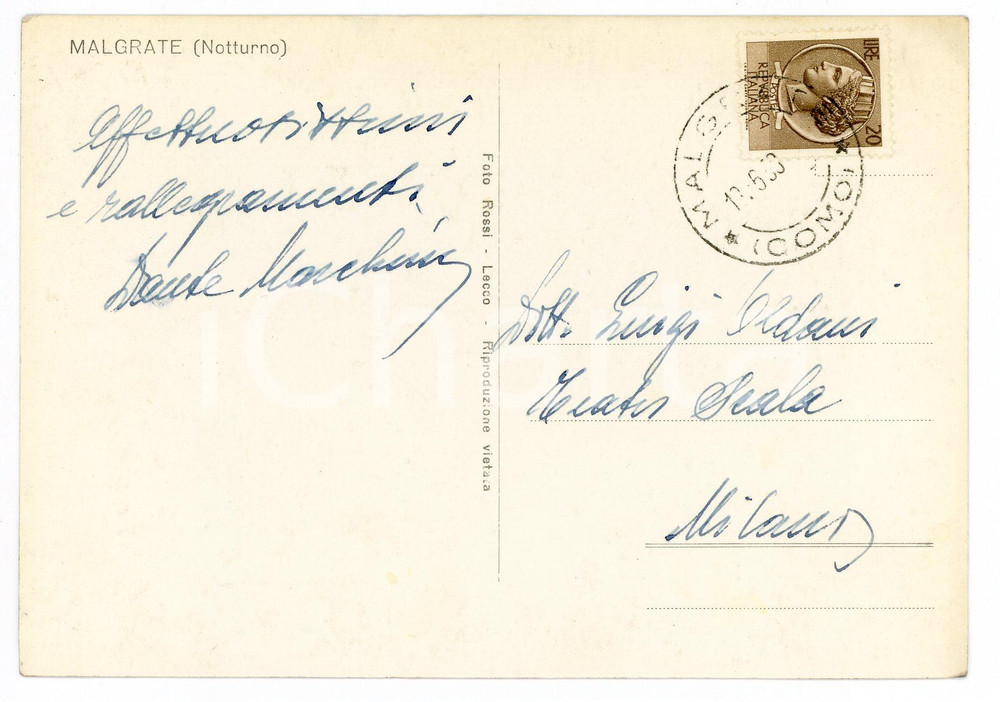 MALGRATE (Notturno)
Affettuosissimi
e rallegramenti.
Dante Marchini
Foto Rossi - Lecco - Riproduzione vietata
LIRE 20
REPVBBLICA
ITALIANA
POSTE
(COMO)
Dott. Luigi Oldani
Teatro Scala
Milano